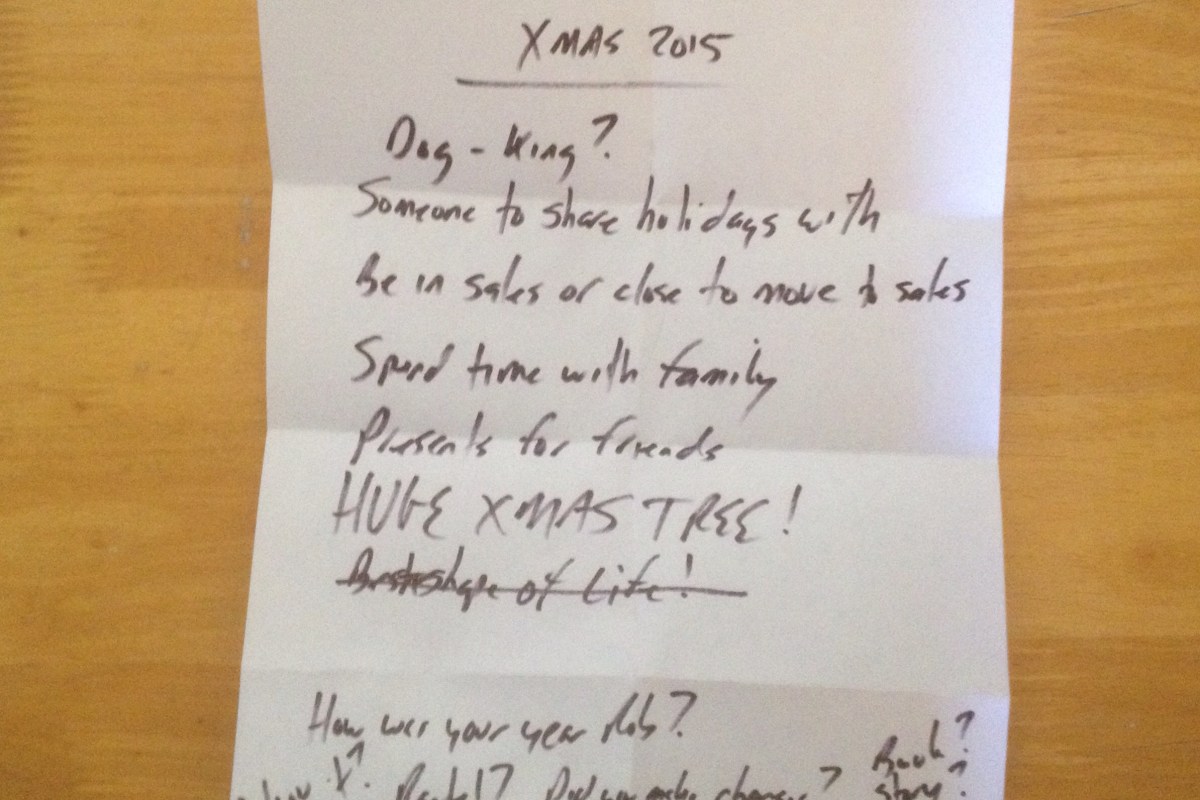 XMAS 2015
Dog - King?
Someone to share holidays with
Be in sales or close to move to sales
Spend time with family
Presents for friends
HUGE XMAS TREE!
Best shape of Life!
How was your year Rob?
Book?
Did you make changes?
story?